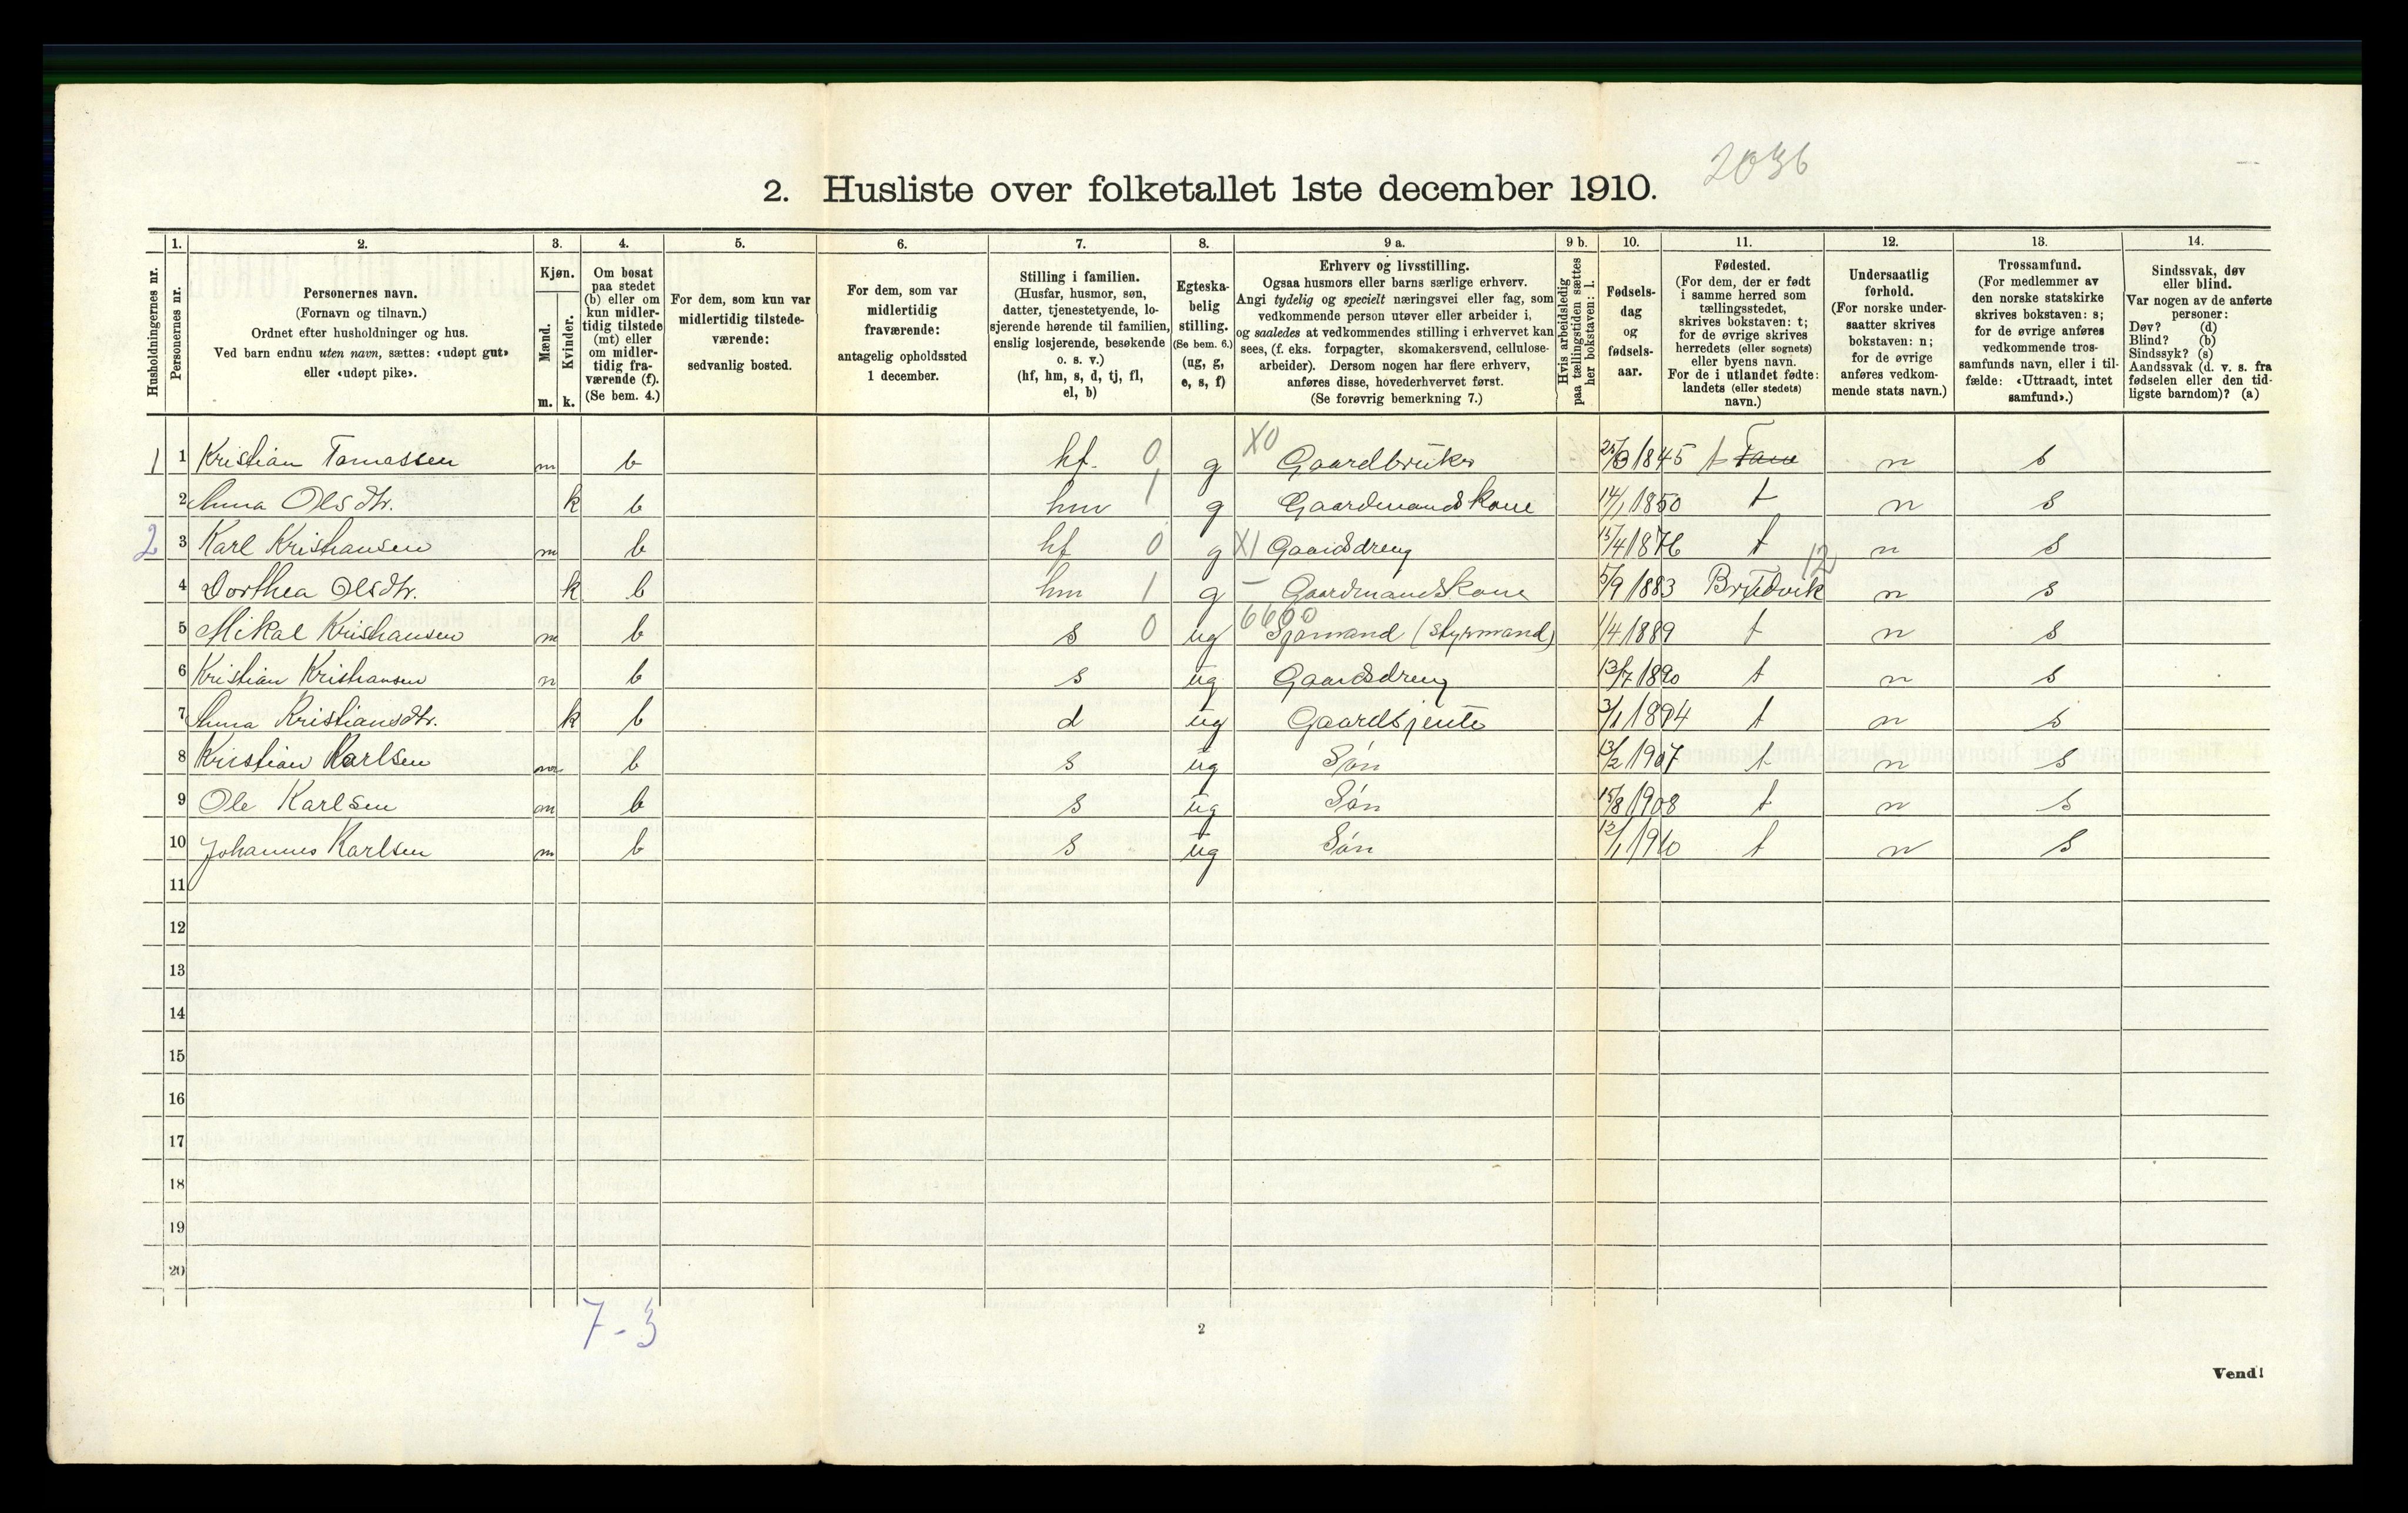 2036
2. Husliste over folketallet 1ste december 1910.
1. 2. 3. 4. 5. 6. 7. 8. 9 a. 9 b. 10. 11. 12. 13. 14.
Husholdningernes nr.
Personernes nr.
Personernes navn.
(Fornavn og tilnavn.)
Ordnet efter husholdninger og hus.
Ved barn endnu uten navn, sættes: «udøpt gut»
eller «udøpt pike».
Kjøn.
Mænd.
Kvinder.
m. k.
Om bosat
paa stedet
(b) eller om
kun midler-
tidig tilstede
(mt) eller
om midler-
tidig fra-
værende (f).
(Se bem. 4.)
For dem, som kun var
midlertidig tilstede-
værende:
sedvanlig bosted.
For dem, som var
midlertidig
fraværende:
antagelig opholdssted
1 december.
Stilling i familien.
(Husfar, husmor, søn,
datter, tjenestetyende, lo-
sjerende hørende til familien,
enslig losjerende, besøkende
o. s. v.)
(hf, hm, s, d, tj, fl,
el, b)
Egteska-
belig
stilling.
(Se bem. 6.)
(ug, g,
e, s, f)
Erhverv og livsstilling.
Ogsaa husmors eller barns særlige erhverv.
Angi tydelig og specielt næringsvei eller fag, som
vedkommende person utøver eller arbeider i,
og saaledes at vedkommendes stilling i erhvervet kan
sees, (f. eks. forpagter, skomakersvend, cellulose-
arbeider). Dersom nogen har flere erhverv,
anføres disse, hovederhvervet først.
(Se forøvrig bemerkning 7.)
Hvis arbeidsledig
paa tællingstiden sættes
her bokstaven: l.
Fødsels-
dag
og
fødsels-
aar.
Fødested.
(For dem, der er født
i samme herred som
tællingsstedet,
skrives bokstaven: t;
for de øvrige skrives
herredets (eller sognets)
eller byens navn.
For de i utlandet fødte:
landets (eller stedets)
navn.)
Undersaatlig
forhold.
(For norske under-
saatter skrives
bokstaven: n;
for de øvrige
anføres vedkom-
mende stats navn.)
Trossamfund.
(For medlemmer av
den norske statskirke
skrives bokstaven: s;
for de øvrige anføres
vedkommende tros-
samfunds navn, eller i til-
fælde: «Uttraadt, intet
samfund».)
Sindssvak, døv
eller blind.
Var nogen av de anførte
personer:
Døv? (d)
Blind? (b)
Sindssyk? (s)
Aandssvak (d. v. s. fra
fødselen eller den tid-
ligste barndom)? (a)
1 1 Kristian Tomassen m b hf. 0 g X0 Gaardbruker 1845 t Fane n s
2 Anna Olsdtr. k b hm 1 g Gaardmandskone 14/1 1850 t n s
2 3 Karl Kristiansen m b hf 0 g X1 Gaardsdreng 15/4 1876 t n s
4 Dorthea Olsdtr. k b hm 1 g - Gaardmandskone 5/9 1883 Brudvik 12 n s
5 Mikal Kristiansen m b s 0 ug 6600 Sjømand (styrmand) 1/4 1889 t n s
6 Kristian Kristiansen m b s ug Gaardsdreng 13/7 1890 t n s
7 Anna Kristiansdtr. k b d ug Gaardsjente 3/1 1894 t n s
8 Kristian Karlsen m b s ug Søn 13/2 1907 t n s
9 Ole Karlsen m b s ug Søn 15/8 1908 t n s
10 Johannes Karlsen m b s ug Søn 1910 t n s
11
12
13
14
15
16
17
18
19
20
7-3
2
Vend!